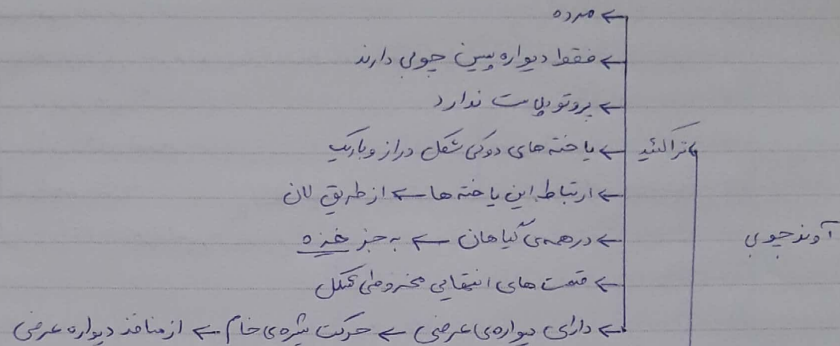 ← مرده
← فقط دیواره پسین چوبی دارند
← پروتوپلاست ندارد
تراکئید ← یاخته های دوکی شکل دراز و باریک
← ارتباط این یاخته ها ← از طریق لان
آوند چوبی
← در همه ی گیاهان ← به جز خزه
← قسمت های انتهایی مخروطی شکل
← دارای دیواره ی عرضی ← حرکت شیره ی خام ← از منافذ دیواره عرضی